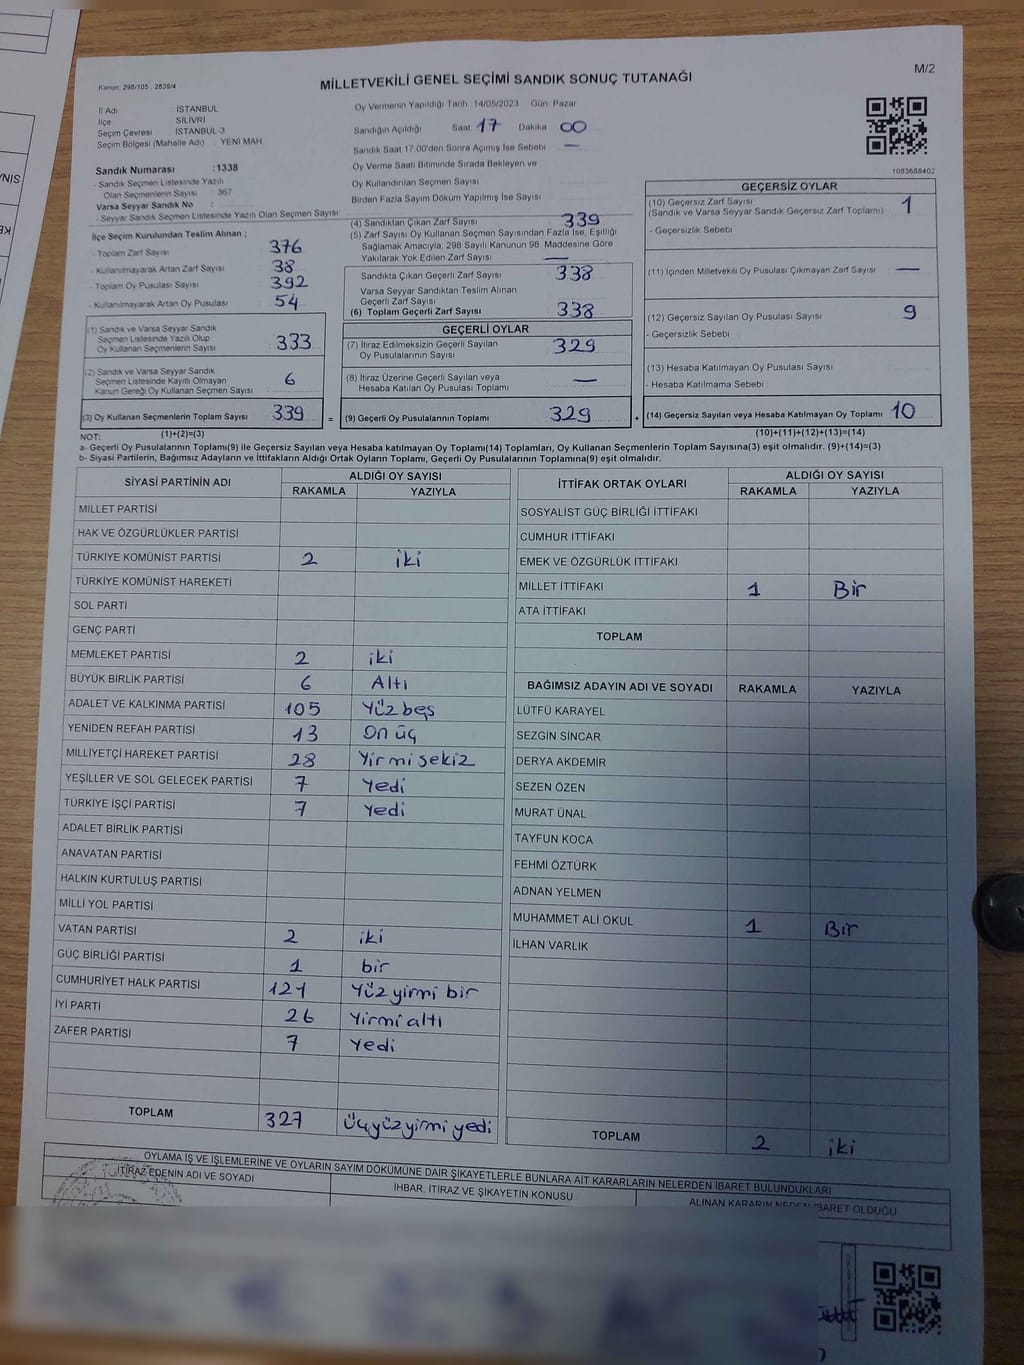 M/2
Kanun: 298/105 , 2839/4
MİLLETVEKİLİ GENEL SEÇİMİ SANDIK SONUÇ TUTANAĞI
İl Adı İSTANBUL
İlçe SİLİVRİ
Seçim Çevresi : İSTANBUL-3
Seçim Bölgesi (Mahalle Adı) YENİ MAH.
Oy Vermenin Yapıldığı Tarih :14/05/2023 Gün: Pazar
Sandığın Açıldığı Saat: 17 Dakika 00
Sandık Saat 17.00'den Sonra Açımış İse Sebebi —
Oy Verme Saati Bitiminde Sırada Bekleyen ve
Oy Kullandırılan Seçmen Sayısı
Birden Fazla Sayım Döküm Yapılmış İse Sayısı
1083688402
Sandık Numarası :1338
- Sandık Seçmen Listesinde Yazılı
Olan Seçmenlerin Sayısı 367
Varsa Seyyar Sandık No :
- Seyyar Sandık Seçmen Listesinde Yazılı Olan Seçmen Sayısı
İlçe Seçim Kurulundan Teslim Alınan ;
- Toplam Zarf Sayısı 376
- Kullanılmayarak Artan Zarf Sayısı 38
- Toplam Oy Pusulası Sayısı 392
- Kullanılmayarak Artan Oy Pusulası 54
(1) Sandık ve Varsa Seyyar Sandık
Seçmen Listesinde Yazılı Olup
Oy Kullanan Seçmenlerin Sayısı 333
(2) Sandık ve Varsa Seyyar Sandık
Seçmen Listesinde Kayıtlı Olmayan
Kanun Gereği Oy Kullanan Seçmen Sayısı 6
(3) Oy Kullanan Seçmenlerin Toplam Sayısı 339 =
(1)+(2)=(3)
(4) Sandıktan Çıkan Zarf Sayısı 339
(5) Zarf Sayısı Oy Kullanan Seçmen Sayısından Fazla İse, Eşitliği
Sağlamak Amacıyla, 298 Sayılı Kanunun 98. Maddesine Göre
Yakılarak Yok Edilen Zarf Sayısı —
Sandıkta Çıkan Geçerli Zarf Sayısı 338
Varsa Seyyar Sandıktan Teslim Alınan
Geçerli Zarf Sayısı
(6) Toplam Geçerli Zarf Sayısı 338
GEÇERLİ OYLAR
(7) İtiraz Edilmeksizin Geçerli Sayılan
Oy Pusulalarının Sayısı 329
(8) İtiraz Üzerine Geçerli Sayılan veya
Hesaba Katılan Oy Pusulası Toplamı —
(9) Geçerli Oy Pusulalarının Toplamı 329 +
GEÇERSİZ OYLAR
(10) Geçersiz Zarf Sayısı
(Sandık ve Varsa Seyyar Sandık Geçersiz Zarf Toplamı) 1
- Geçersizlik Sebebi
(11) İçinden Milletvekili Oy Pusulası Çıkmayan Zarf Sayısı —
(12) Geçersiz Sayılan Oy Pusulası Sayısı 9
- Geçersizlik Sebebi
(13) Hesaba Katılmayan Oy Pusulası Sayısı
- Hesaba Katılmama Sebebi
(14) Geçersiz Sayılan veya Hesaba Katılmayan Oy Toplamı 10
(10)+(11)+(12)+(13)=(14)
NOT:
a- Geçerli Oy Pusulalarının Toplamı(9) ile Geçersiz Sayılan veya Hesaba katılmayan Oy Toplamı(14) Toplamları, Oy Kullanan Seçmenlerin Toplam Sayısına(3) eşit olmalıdır. (9)+(14)=(3)
b- Siyasi Partilerin, Bağımsız Adayların ve İttifakların Aldığı Ortak Oyların Toplamı, Geçerli Oy Pusulalarının Toplamına(9) eşit olmalıdır.
SİYASİ PARTİNİN ADI ALDIĞI OY SAYISI
RAKAMLA YAZIYLA
MİLLET PARTİSİ
HAK VE ÖZGÜRLÜKLER PARTİSİ
TÜRKİYE KOMÜNİST PARTİSİ 2 iki
TÜRKİYE KOMÜNİST HAREKETİ
SOL PARTİ
GENÇ PARTİ
MEMLEKET PARTİSİ 2 iki
BÜYÜK BİRLİK PARTİSİ 6 Altı
ADALET VE KALKINMA PARTİSİ 105 Yüz beş
YENİDEN REFAH PARTİSİ 13 On üç
MİLLİYETÇİ HAREKET PARTİSİ 28 Yirmi sekiz
YEŞİLLER VE SOL GELECEK PARTİSİ 7 Yedi
TÜRKİYE İŞÇİ PARTİSİ 7 Yedi
ADALET BİRLİK PARTİSİ
ANAVATAN PARTİSİ
HALKIN KURTULUŞ PARTİSİ
MİLLİ YOL PARTİSİ
VATAN PARTİSİ 2 iki
GÜÇ BİRLİĞİ PARTİSİ 1 bir
CUMHURİYET HALK PARTİSİ 121 Yüz yirmi bir
İYİ PARTİ 26 Yirmi altı
ZAFER PARTİSİ 7 Yedi
TOPLAM 327 üçyüzyirmi yedi
İTTİFAK ORTAK OYLARI ALDIĞI OY SAYISI
RAKAMLA YAZIYLA
SOSYALİST GÜÇ BİRLİĞİ İTTİFAKI
CUMHUR İTTİFAKI
EMEK VE ÖZGÜRLÜK İTTİFAKI
MİLLET İTTİFAKI 1 Bir
ATA İTTİFAKI
TOPLAM
BAĞIMSIZ ADAYIN ADI VE SOYADI RAKAMLA YAZIYLA
LÜTFÜ KARAYEL
SEZGİN SİNCAR
DERYA AKDEMİR
SEZEN ÖZEN
MURAT ÜNAL
TAYFUN KOCA
FEHMİ ÖZTÜRK
ADNAN YELMEN
MUHAMMET ALİ OKUL 1 Bir
İLHAN VARLIK
TOPLAM 2 iki
OYLAMA İŞ VE İŞLEMLERİNE VE OYLARIN SAYIM DÖKÜMÜNE DAİR ŞİKAYETLERLE BUNLARA AİT KARARLARIN NELERDEN İBARET BULUNDUKLARI
İTİRAZ EDENİN ADI VE SOYADI
İHBAR, İTİRAZ VE ŞİKAYETİN KONUSU
ALINAN KARARIN NEDEN İBARET OLDUĞU